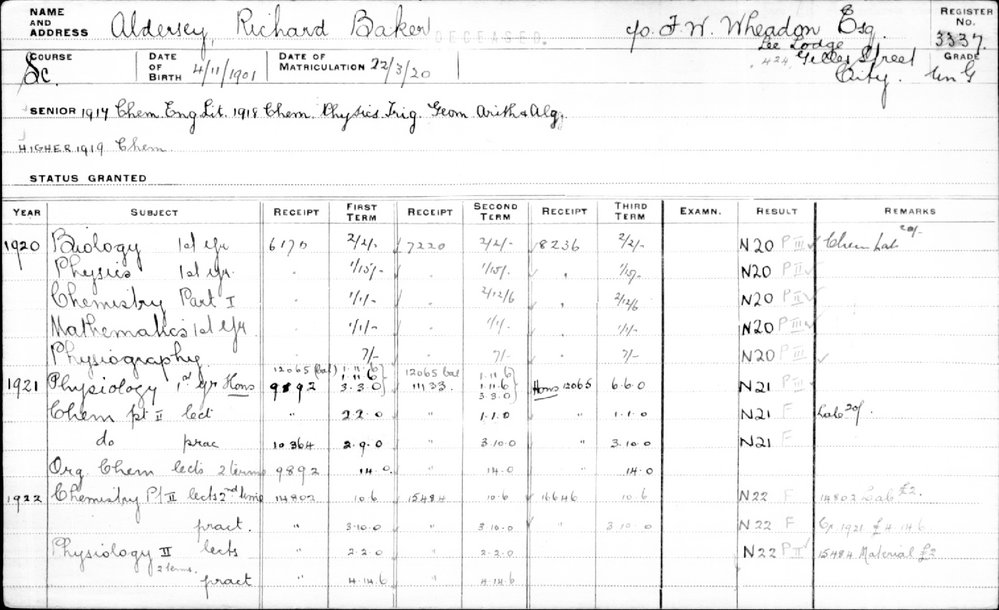 NAME AND ADDRESS Aldersey, Richard Baker DECEASED. c/o. F. W. Wheadon Esq. REGISTER No. 3337.
Lee Lodge
424 Gilles Street
City. GRADE Un G
COURSE Sc. DATE OF BIRTH 4/11/1901 DATE OF MATRICULATION 22/3/20
SENIOR 1917 Chem. Eng Lit. 1918 Chem. Physics. Trig. Geom. Arith & Alg.
HIGHER 1919 Chem.
STATUS GRANTED
YEAR SUBJECT RECEIPT FIRST TERM RECEIPT SECOND TERM RECEIPT THIRD TERM EXAMN. RESULT REMARKS
1920 Biology 1st yr 6170 2/2/- 7220 2/2/- 8236 2/2/- N20 P III Chem Lab 20/-
Physics 1st yr. 1/15/- 1/15/- 1/15/- N20 P II
Chemistry Part I 1/1/- 2/12/6 2/12/6 N20 P II
Mathematics 1st yr 1/1/- 1/1/- 1/1/- N20 P III
Physiography 7/- 7/- 7/- N20 P III
12065 (bal) 1.11.6 12065 (bal) 1.11.6
1.11.6 1.11.6
1921 Physiology 1st yr Hons 9892 3.3.0 11133. 3.3.0 Hons 12065 6.6.0 N21 P III
Chem pt II lect " 2.2.0 " 1.1.0 " 1.1.0 N21 F Lab 20/-
do prac 10364 2.9.0 " 3.10.0 " 3.10.0 N21 F
Org. Chem lects 2 terms 9892 14.0 " 14.0 " 14.0
1922 Chemistry Pt II lects 2nd time 14802 10.6 15484 10.6 16646 10.6 N22 F 14802 Lab £2.
pract. " 3.10.0 " 3.10.0 " 3.10.0 N22 F Cr. 1921 £4.14.6
Physiology II lects " 2.2.0 " 2.2.0 N22 P II 15484 Material £2
2 terms. pract " 4.14.6 " 4.14.6